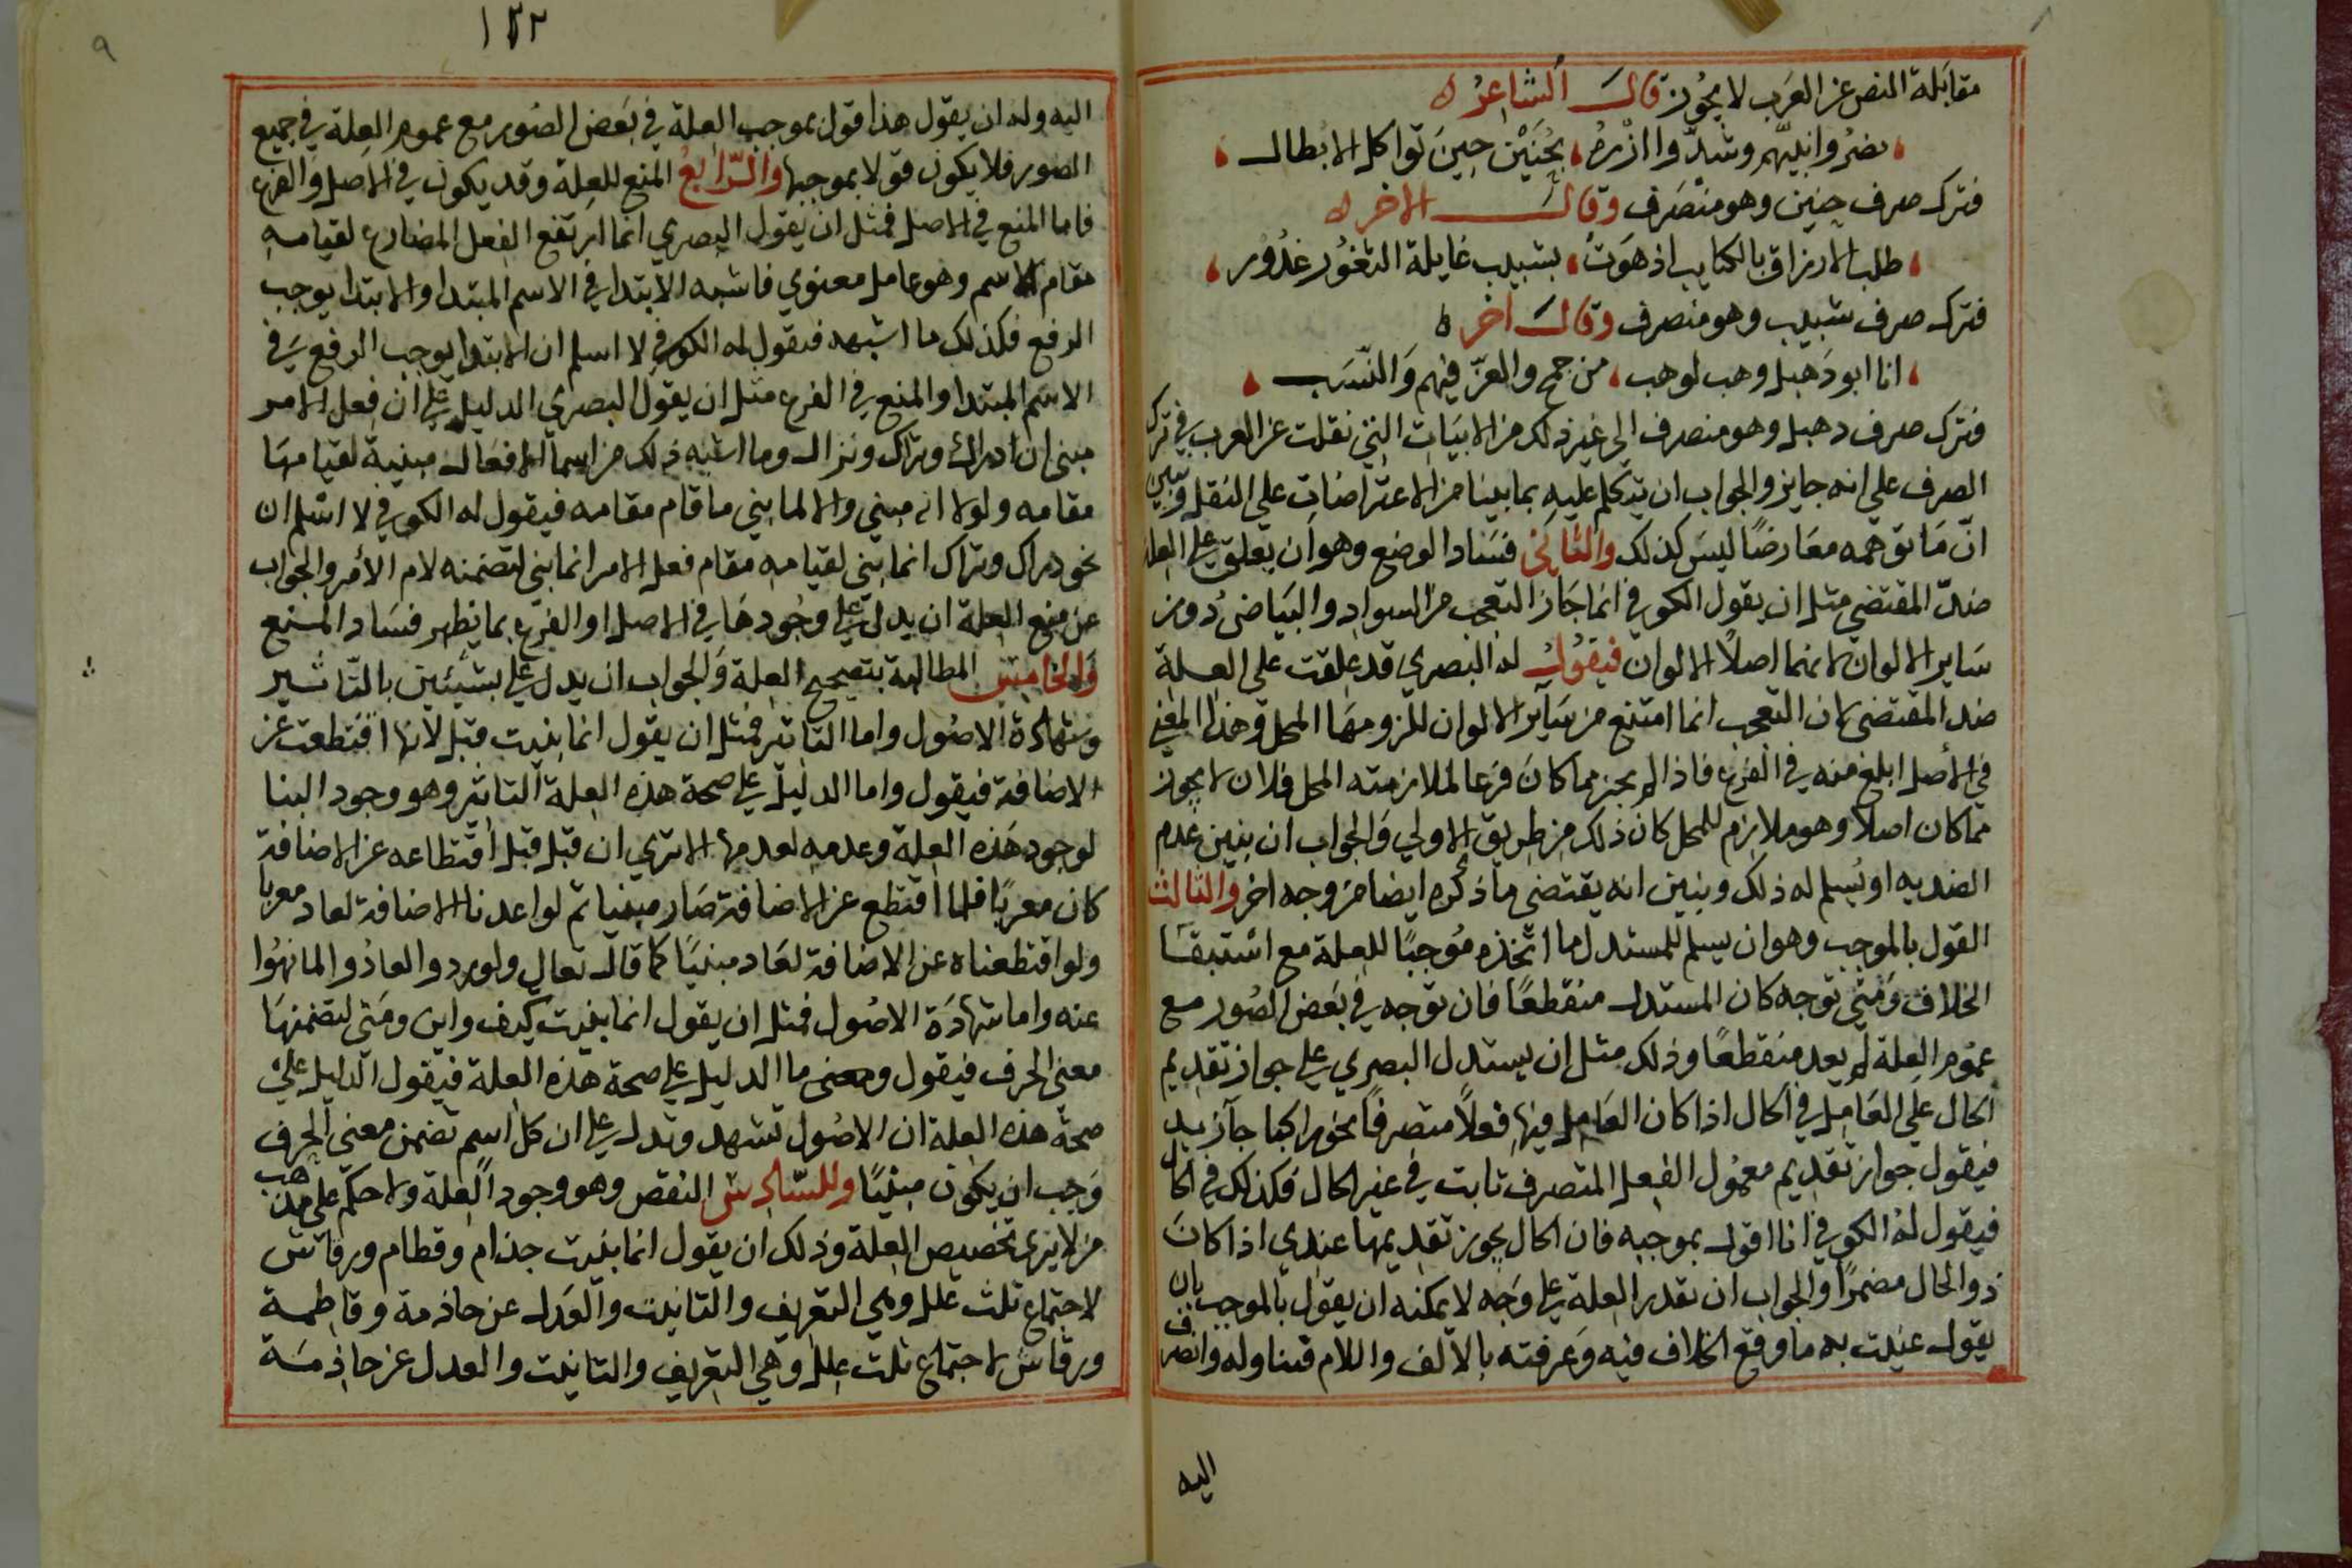 مقابلة النص عن العرب لا يجوز قال الشاعر
نصروا نبيهم وشدوا ازره بحنين حين تواكل الابطال
فترك صرف حنين وهو منصرف وقال الاخر
طلب الازراق بالكتايب اذ هوت بشبيب غايلة الثغور غدور
فترك صرف شبيب وهو منصرف وقال اخر
انا ابو دهبل وهب لوهب من جمح والعز فيهم والنسب
فترك صرف دهبل وهو منصرف الى غير ذلك من الابيات التي نقلت عن العرب في ترك
الصرف على انه جايز والجواب ان يتكلم عليه بما بينا من الاعتراضات على النقل وتبين
ان ما توهمه معارضا ليس كذلك والثاني فساد الوضع وهو ان يعلق على العلة
ضد المقتضى مثل ان يقول الكوفي انما جاز التعجب من السواد والبياض دون
ساير الالوان لانهما اصلا الالوان فيقول له البصري قد علقت على العلة
ضد المقتضى لان التعجب انما امتنع من ساير الالوان للزومها المحل وهذا المعنى
في الأصل ابلغ منه في الفرع فاذا لم يجز مما كان فرعا لملازمته المحل فلان لا يجوز
مما كان اصلا وهو ملازم للمحل كان ذلك من طريق الاولي والجواب ان يبين عدم
الضديه او يسلم له ذلك ويبين انه يقتضى ما ذكره ايضا من وجه اخر والثالث
القول بالموجب وهو ان يسلم للمستدل ما اتخذه موجبا للعلة مع استبقا
الخلاف ومتى توجه كان المستدل منقطعا فان توجه في بعض الصور مع
عموم العلة لم يعد منقطعا وذلك مثل ان يستدل البصري على جواز تقديم
الحال على العامل في الحال اذا كان العامل فيها فعلا متصرفا نحو راكبا جآ زيد
فيقول جواز تقديم معمول الفعل المتصرف ثابت في غير الحال فكذلك في الحال
فيقول له الكوفي انا اقول بموجبه فان الحال يجوز تقديمها عندي اذا كان
ذو الحال مضمرا والجواب ان يقدر العلة على وجه لا يمكنه ان يقول بالموجب بان
يقول عنيت به ما وقع الخلاف فيه وعرفته بالالف واللام فتناوله وانصرف
اليه
١٢٢
٩
اليه وله ان يقول هذا قول بموجب العلة في بعض الصور مع عموم العلة في جميع
الصور فلا يكون قولا بموجبها والرابع المنع للعلة وقد يكون في الاصل والفرع
فاما المنع في الاصل فمثل ان يقول البصري انما ارتفع الفعل المضارع لقيامه
مقام الاسم وهو عامل معنوي فاشبه الابتدا في الاسم المبتدا والابتدا يوجب
الرفع فكذلك ما اشبهه فيقول له الكوفي لا اسلم ان الابتدا يوجب الرفع في
الاسم المبتدا والمنع في الفرع مثل ان يقول البصري الدليل على ان فعل الامر
مبني ان دراك وتراك ونزال وما اشبه ذلك من اسما الافعال مبنية لقيامها
مقامه ولولا انه مبني والا لما بني ما قام مقامه فيقول له الكوفي لا اسلم ان
نحو دراك وتراك انما بني لقيامه مقام فعل الامر انما بني لتضمنه لام الأمر والجواب
عن منع العلة ان يدل على وجودها في الاصل او الفرع بما يظهر فساد المنع
والخامس المطالبة بتصحيح العلة والجواب ان يدل على بشيئين بالتاثير
وشهادة الاصول واما التاثير فمثل ان يقول انما بنيت قبل لانها اقتطعت عن
الاضافة فيقول واما الدليل على صحة هذه العلة التاثير وهو وجود البنا
لوجود هذه العلة وعدمه لعدمها الا تري ان قبل قبل اقتطاعه عن الاضافة
كان معربا فلما اقتطع عن الاضافة صار مبنيا ثم لو اعدنا الاضافة لعاد معربا
ولو اقتطعناه عن الاضافة لعاد مبنيا كما قال تعالى ولو ردوا لعادوا لما نهوا
عنه واما شهادة الاصول فمثل ان يقول انما بنيت كيف واين ومتى لتضمنها
معنى الحرف فيقول ومعنى ما الدليل على صحة هذه العلة فيقول الدليل على
صحة هذه العلة ان الاصول تشهد وتدل على ان كل اسم تضمن معنى الحرف
وجب ان يكون مبنيا والسادس النقص وهو وجود العلة ولا حكم على مذهب
من لا يرى تخصيص العلة وذلك ان يقول انما بنيت حذام وقطام ورقاش
لاجتماع ثلث علل وهي التعريف والتانيث والعدل عن حاذمة وقاطمة
ورقاش لاجتماع ثلث علل وهي التعريف والتانيث والعدل عن حاذمة